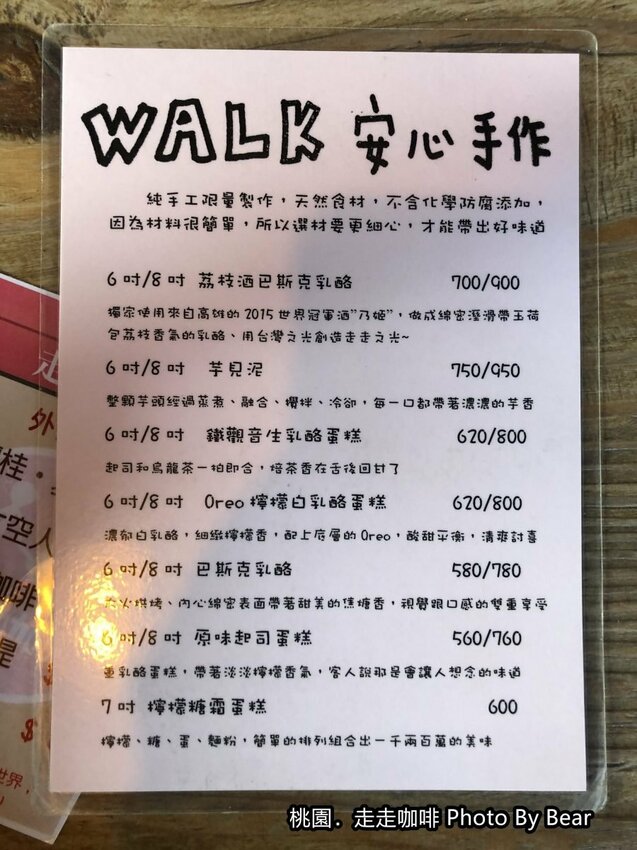 WALK 安心手作
純手工限量製作，天然食材，不含化學防腐添加，
因為材料很簡單，所以選材要更細心，才能帶出好味道
6吋/8吋 荔枝酒巴斯克乳酪 700/900
獨家使用來自高雄的2015世界冠軍酒"乃姬"，做成綿密溼滑帶玉荷
包荔枝香氣的乳酪、用台灣之光創造走走之光~
6吋/8吋 芋見泥 750/950
整顆芋頭經過蒸煮、融合、攪拌、冷卻，每一口都帶著濃濃的芋香
6吋/8吋 鐵觀音生乳酪蛋糕 620/800
起司和烏龍茶一拍即合，焙茶香在舌後回甘了
6吋/8吋 Oreo檸檬白乳酪蛋糕 620/800
濃郁白乳酪，細緻檸檬香，配上底層的Oreo，酸甜平衡，清爽討喜
6吋/8吋 巴斯克乳酪 580/780
火烘烤、內心綿密表面帶著甜美的焦糖香，視覺跟口感的雙重享受
6吋/8吋 原味起司蛋糕 560/760
重乳酪蛋糕，帶著淡淡檸檬香氣，客人說那是會讓人想念的味道
7吋 檸檬糖霜蛋糕 600
檸檬、糖、蛋、麵粉，簡單的排列組合出一千兩百萬的美味
走
外
桂．
空人
咖啡
是
$
世界，
桃園．走走咖啡 Photo By Bear